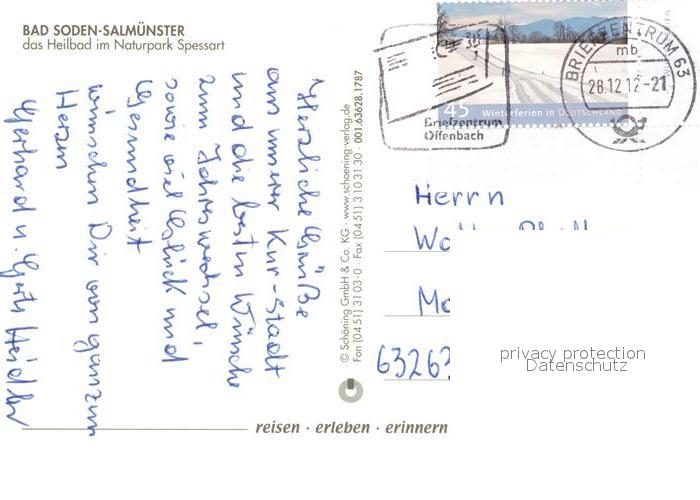 BAD SODEN-SALMÜNSTER
das Heilbad im Naturpark Spessart
Herzliche Grüße
aus unserer Kur-Stadt
und die besten Wünsche
zum Jahreswechsel,
sowie viel Glück und
Gesundheit
wünschen Dir von ganzem
Herzen
Gerhard u.
© Schöning GmbH & Co. KG · www.schoening-verlag.de
Fon (04 51) 31 03-0 · Fax (04 51) 3 10 31 30 · 001.63628.1787
Briefzentrum
Offenbach
45 Winterferien in DEUTSCHLAND
BRIEFZENTRUM 63
mb
28.12.12-21
Herrn
63263
privacy protection
Datenschutz
reisen · erleben · erinnern